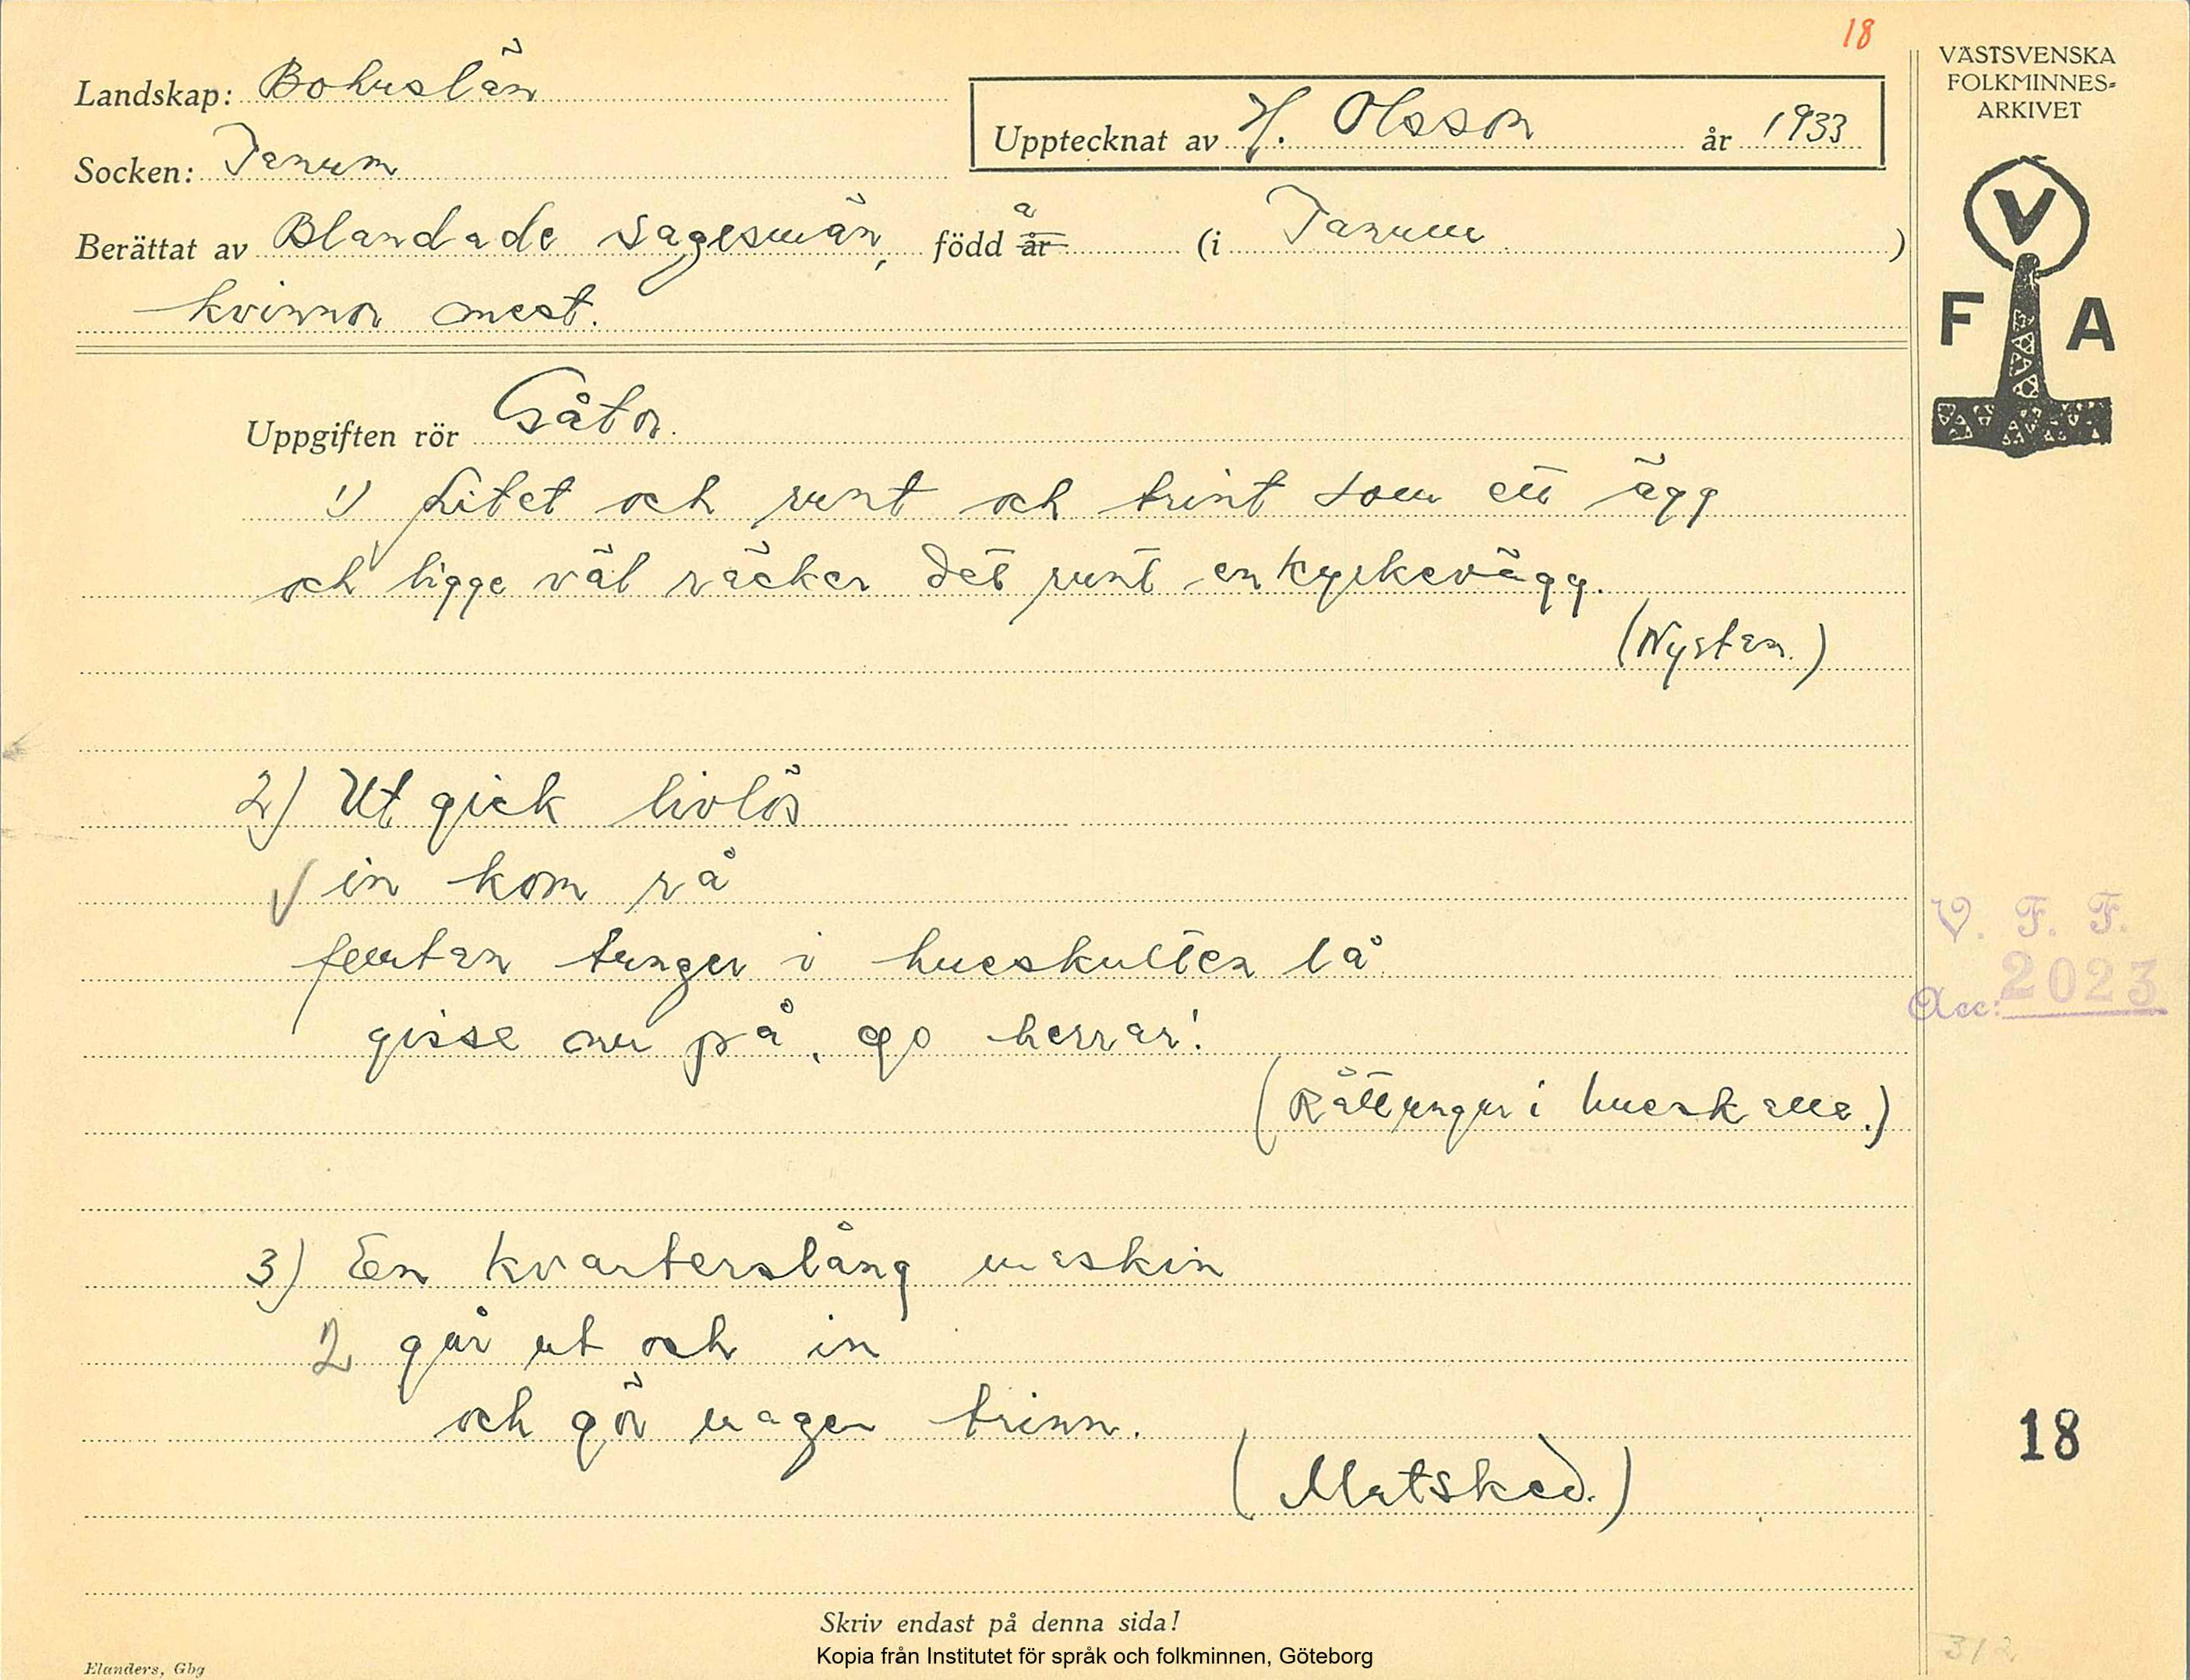 18
Landskap: Bohuslän
Upptecknat av H. Olsson år 1933
Socken: Tanum
Berättat av Blandade sagesmän, född år a (i Tanum)
kvinnor mest.
VÄSTSVENSKA
FOLKMINNES-
ARKIVET
V
F A
Uppgiften rör Gåtor.
1) Litet och runt och trint som ett ägg
och ligge väl räcker det runt en kyrkevägg.
(Nystan.)
2) Ut gick livlös
in kom rå
fjurtan tunger i hueskulten lå
gisse nu på, go herrar!
(Råttungar i hueskalle.)
V. F. F.
Acc: 2023
3) En kvarterslång maskin
2 går ut och in
och gör magen trinn.
(Matsked.)
18
Skriv endast på denna sida!
Kopia från Institutet för språk och folkminnen, Göteborg
Elanders, Gbg
312